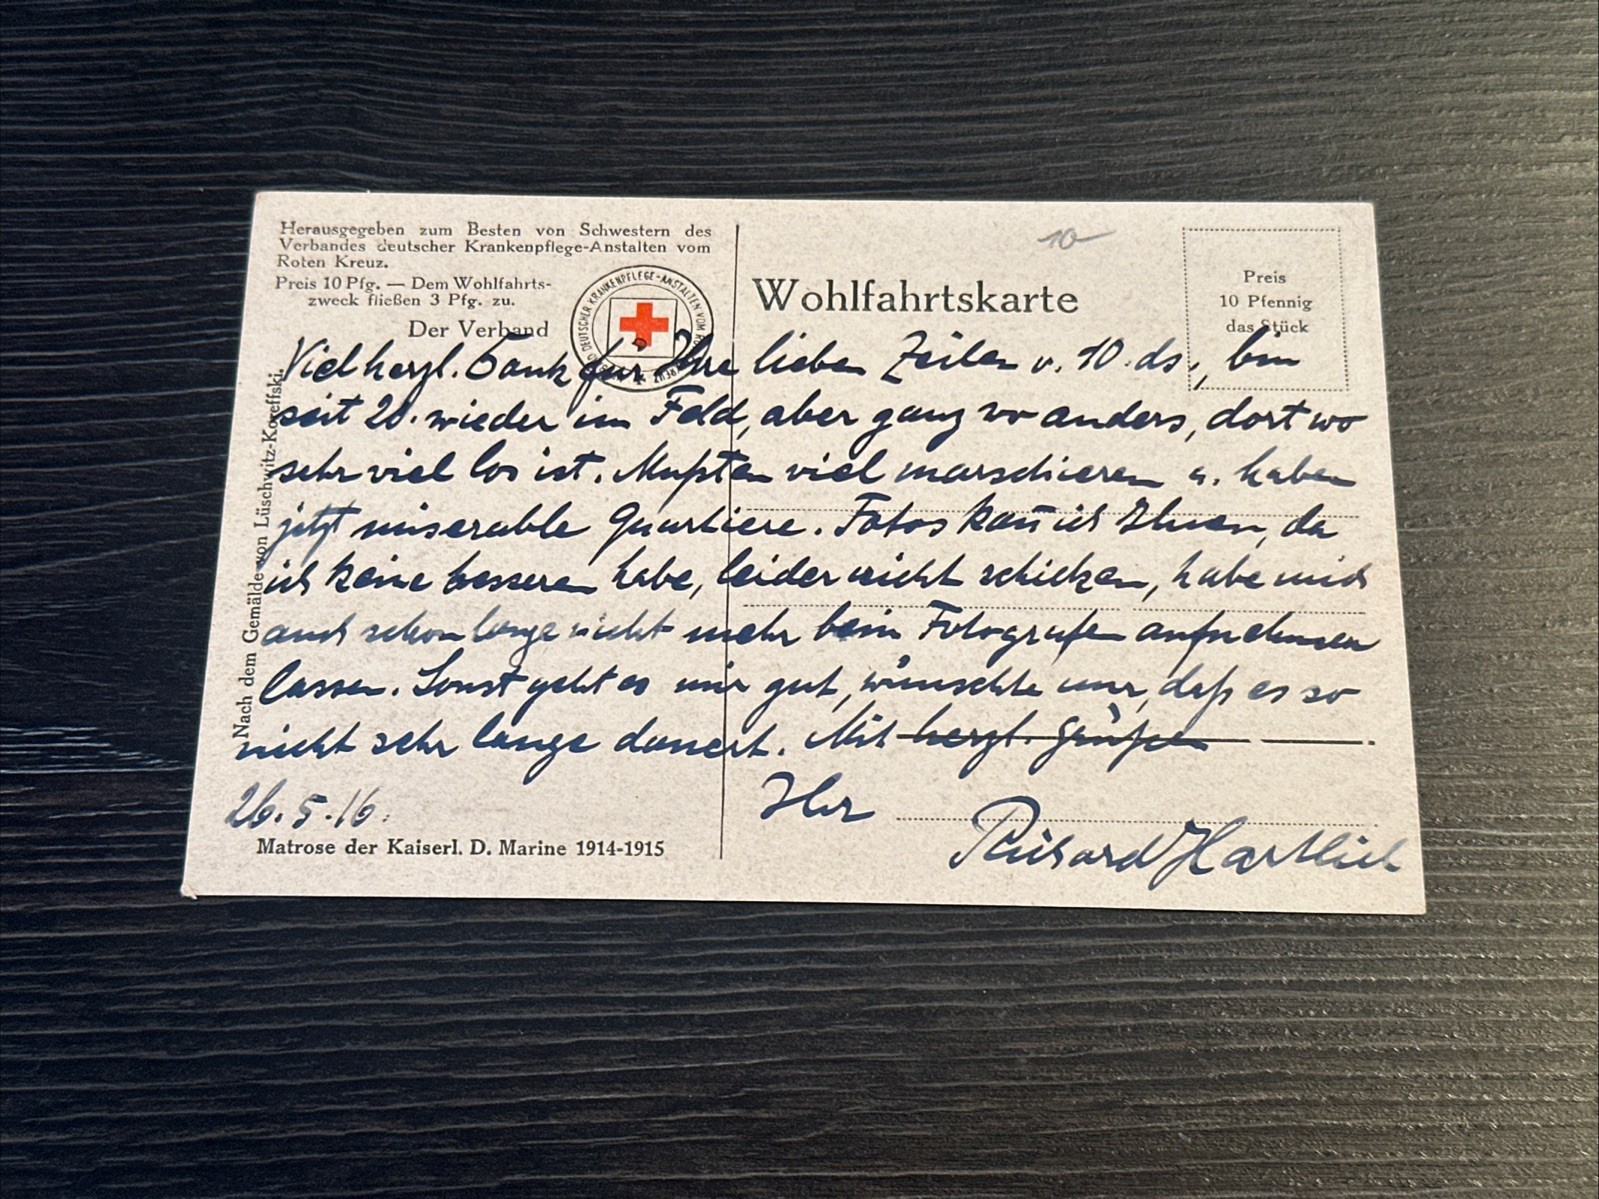 Herausgegeben zum Besten von Schwestern des
Verbandes deutscher Krankenpflege-Anstalten vom
Roten Kreuz.
Preis 10 Pfg. — Dem Wohlfahrts-
zweck fließen 3 Pfg. zu.
Der Verband
DEUTSCHER KRANKENPFLEGE-ANSTALTEN VOM
Wohlfahrtskarte
10
Preis
10 Pfennig
das Stück
Nach dem Gemälde von Lüschwitz-Koreffski.
Viel herzl. Dank für Ihre lieben Zeilen v. 10. ds., bin
seit 20. wieder im Feld, aber ganz wo anders, dort wo
sehr viel los ist. Mußten viel marschieren u. haben
jetzt miserable Quartiere. Fotos kan̄ ich Ihnen, da
ich keine besseren habe, leider nicht schicken, habe mich
auch schon lange nicht mehr beim Fotografen aufnehmen
lassen. Sonst geht es mir gut, wünschte nur, daß es so
nicht sehr lange dauert. Mit herzl. Grüßen
Ihr
Richard Hartlieb
26.5.16.
Matrose der Kaiserl. D. Marine 1914-1915